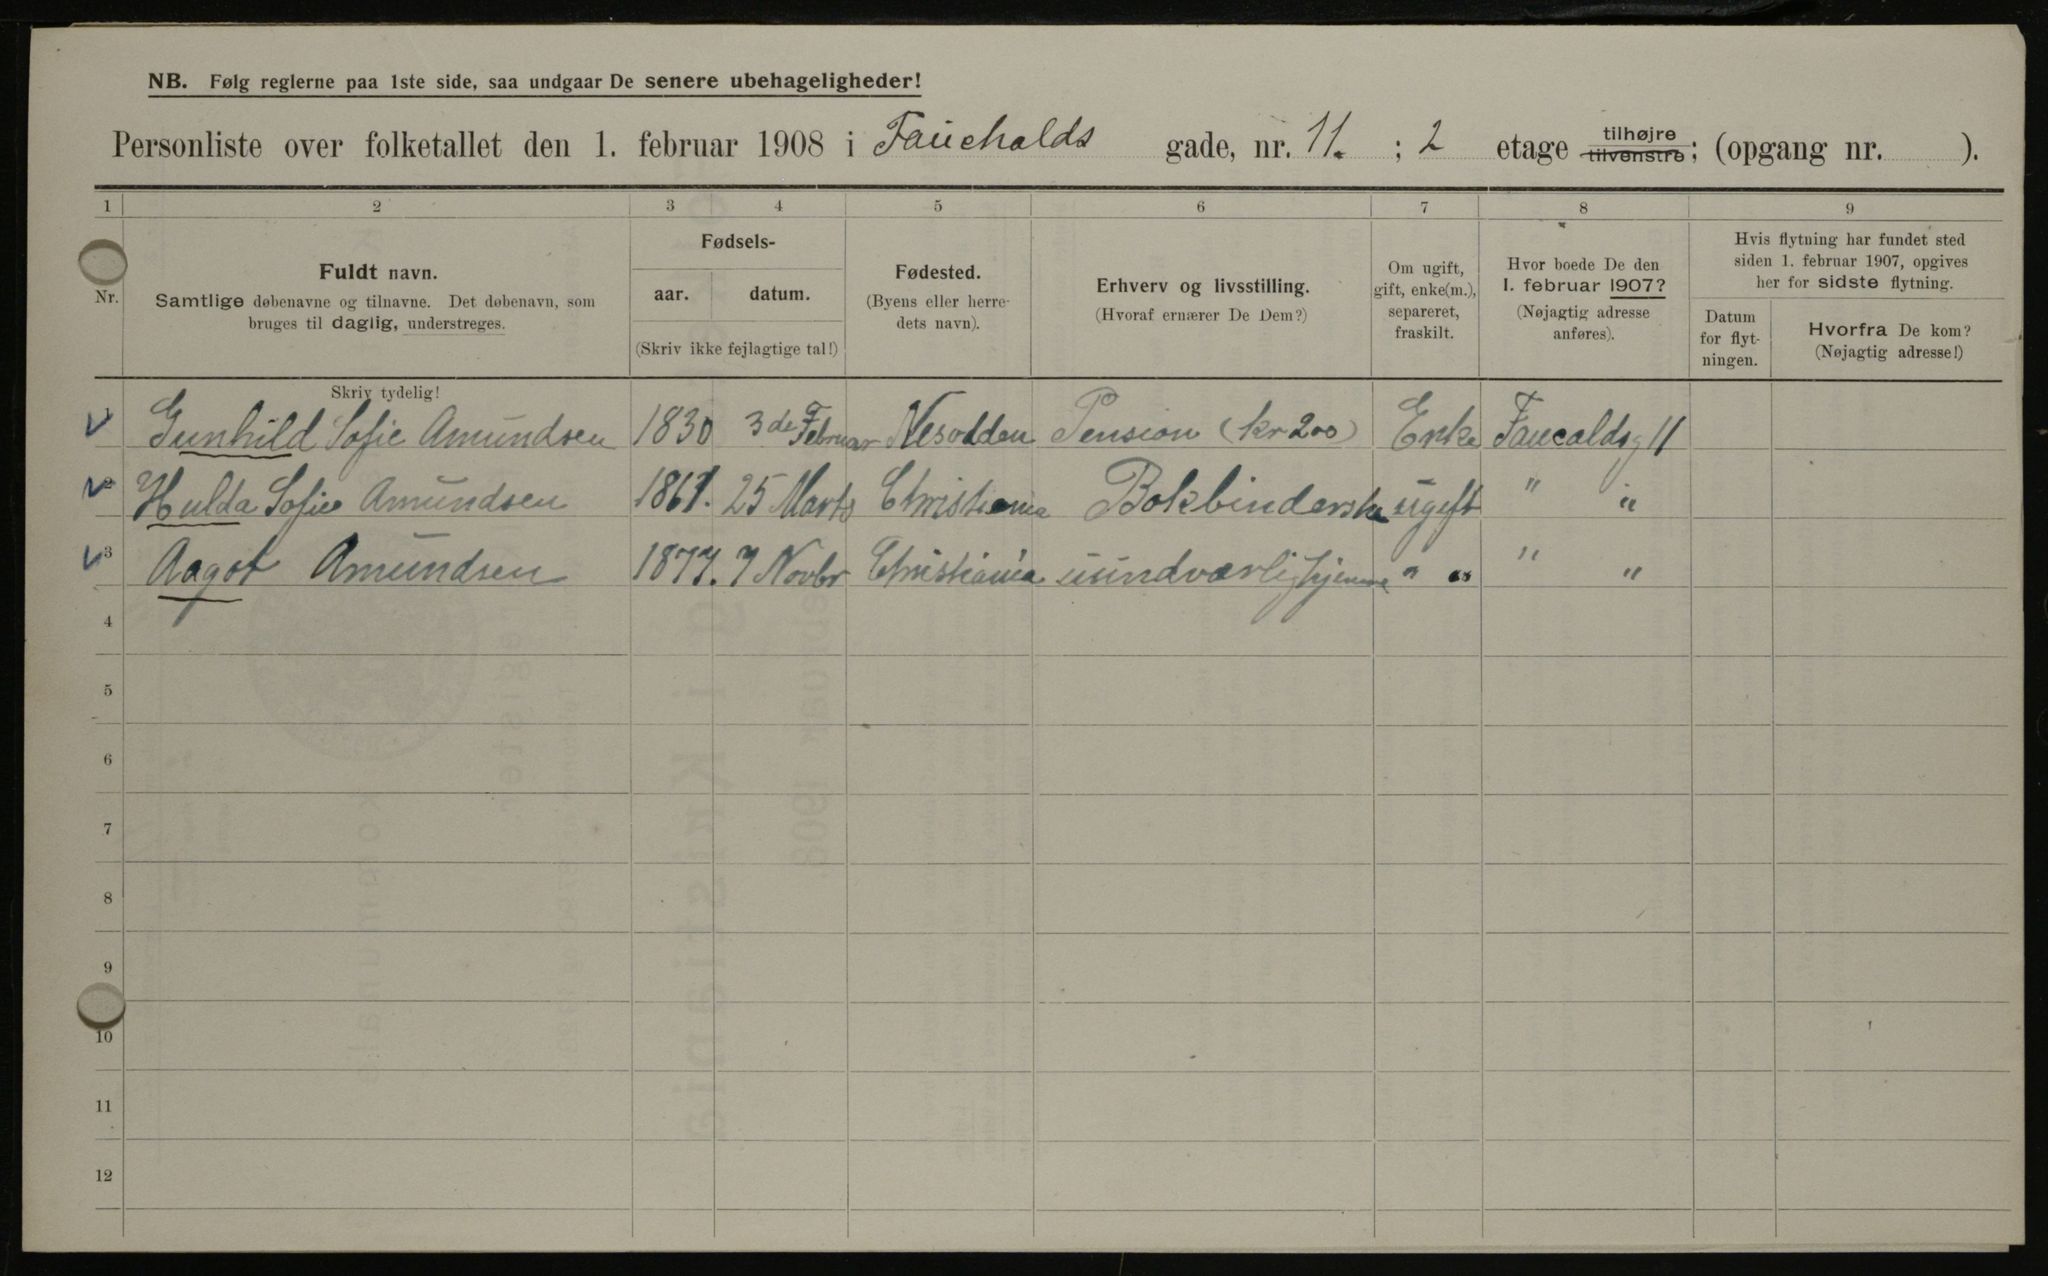 NB. Følg reglerne paa 1ste side, saa undgaar De senere ubehageligheder!
Personliste over folketallet den 1. februar 1908 i Faucholds gade, nr. 11. ; 2 etage tilhøjre tilvenstre; (opgang nr. ).
1 2 3 4 5 6 7 8 9
Nr.
Fuldt navn.
Samtlige døbenavne og tilnavne. Det døbenavn, som
bruges til daglig, understreges.
Skriv tydelig!
Fødsels-
aar. datum.
(Skriv ikke fejlagtige tal!)
Fødested.
(Byens eller herre-
dets navn).
Erhverv og livsstilling.
(Hvoraf ernærer De Dem?)
Om ugift,
gift, enke(m.),
separeret,
fraskilt.
Hvor boede De den
1. februar 1907?
(Nøjagtig adresse
anføres).
Hvis flytning har fundet sted
siden 1. februar 1907, opgives
her for sidste flytning.
Datum
for flyt-
ningen.
Hvorfra De kom?
(Nøjagtig adresse!)
1 Gunhild Sofie Amundsen 1830 3de Februar Nesodden Pension (kr 200) Enke Faucaldsg 11
2 Hulda Sofie Amundsen 25 Marts Christiania Bokbinderske ugift " "
3 Aagot Amundsen 1877. 7 Novbr Christiania uundværlig hjemme " " " "
4
5
6
7
8
9
10
11
12